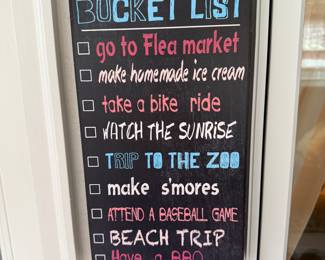 BUCKET LIST
go to Flea market
make homemade ice cream
take a bike ride
WATCH THE SUNRISE
TRIP TO THE ZOO
make s'mores
ATTEND A BASEBALL GAME
BEACH TRIP
Have a BBQ